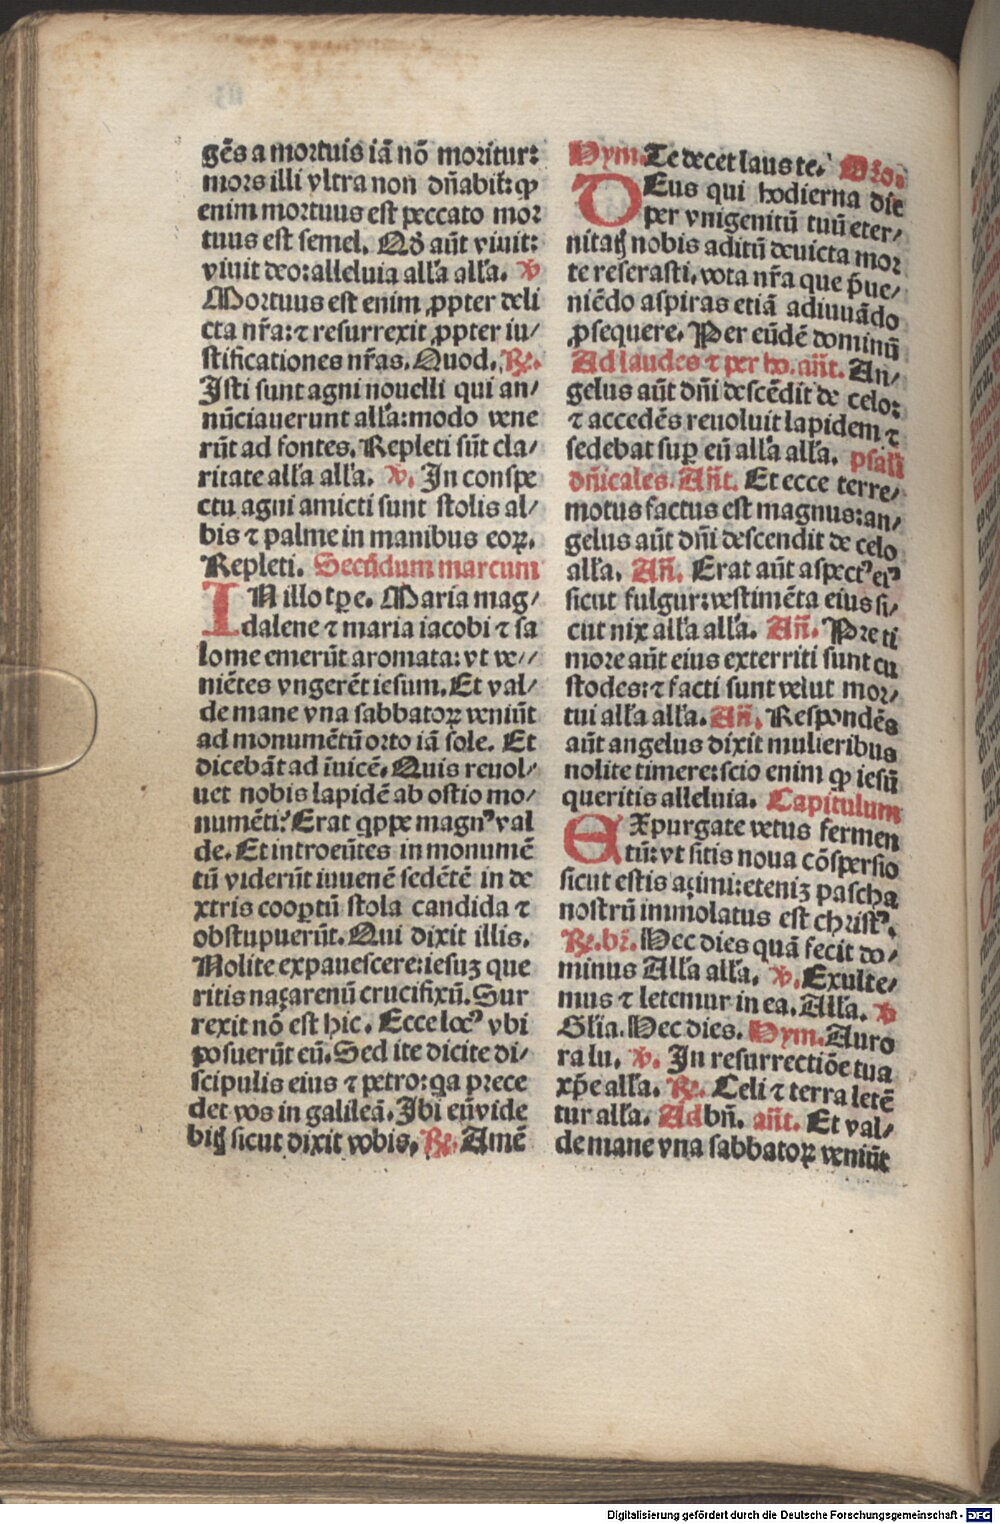 gẽs a mortuis iã nõ moritur:
mors illi vltra non dñabit̉: ꝙ
enim mortuus est peccato mor
tuus est semel. Qď aũt viuit:
viuit deo: alleluia all'a all'a. ℣
Mortuus est enim ꝓpter deli
cta nr̃a: ⁊ resurrexit ꝓpter iu/
stificationes nr̃as. Quod. ℟.
Isti sunt agni nouelli qui an/
nũciauerunt all'a: modo vene
rũt ad fontes. Repleti sũt cla/
ritate all'a all'a. ℣. In conspe
ctu agni amicti sunt stolis al/
bis ⁊ palme in manibus eoꝝ.
Repleti. Secũdum marcum
IN illo tꝑe. Maria mag/
dalene ⁊ maria iacobi ⁊ sa
lome emerũt aromata: vt ve//
niẽtes vngerẽt iesum. Et val/
de mane vna sabbatoꝝ veniũt
ad monumẽtũ orto iã sole. Et
dicebãt ad ĩuicẽ. Quis reuol/
uet nobis lapidẽ ab ostio mo/
numẽti? Erat qͥppe magnꝰ val
de. Et introeũtes in monumẽ
tũ viderũt iuuenẽ sedẽtẽ in de
xtris cooꝑtũ stola candida ⁊
obstupuerũt. Qui dixit illis.
Nolite expauescere: iesuꝫ que
ritis naçarenũ crucifixũ. Sur
rexit nõ est hic. Ecce locꝰ vbi
posuerũt eũ. Sed ite dicite di/
scipulis eius ⁊ petro: qa prece
det vos in galileã. Ibi eũ vide
bitꝭ sicut dixit vobis. ℟. Amẽ
Hym. Te decet laus te. Oŕo.
DEus qui hodierna die
per vnigenitũ tuũ eter/
nitatꝭ nobis aditũ deuicta mor
te reserasti. vota nr̃a que p̃ue/
niẽdo aspiras etiã adiuuãdo
ꝓsequere. Per eũdẽ dominũ
Ad laudes ⁊ per ho. añt. An/
gelus aũt dñi descẽdit de celo:
⁊ accedẽs reuoluit lapidem ⁊
sedebat suꝑ eũ all'a all'a. psal'i
dñicales. Añt. Et ecce terre/
motus factus est magnus: an/
gelus aũt dñi descendit de celo
all'a. Añ. Erat aũt aspectꝰ eiꝰ
sicut fulgur: vestimẽta eius si/
cut nix all'a all'a. Añ. Pre ti
more aũt eius exterriti sunt cu
stodes: ⁊ facti sunt velut mor/
tui all'a all'a. Añ. Respondẽs
aũt angelus dixit mulieribus
nolite timere: scio enim ꝙ iesũ
queritis alleluia. Capitulum
EXpurgate vetus fermen
tũ: vt sitis noua cõspersio
sicut estis açimi: etenim pascha
nostrũ immolatus est christꝰ.
℟. br̃. Hec dies quã fecit do/
minus All'a all'a. ℣. Exulte/
mus ⁊ letemur in ea. All'a. ℣
Gl'ia. Hec dies. Hym. Auro
ra lu. ℣. In resurrectiõe tua
xp̃e all'a. ℟. Celi ⁊ terra letẽ
tur all'a. Ad bñ. añt. Et val/
de mane vna sabbatoꝝ veniũt
Digitalisierung gefördert durch die Deutsche Forschungsgemeinschaft - DFG